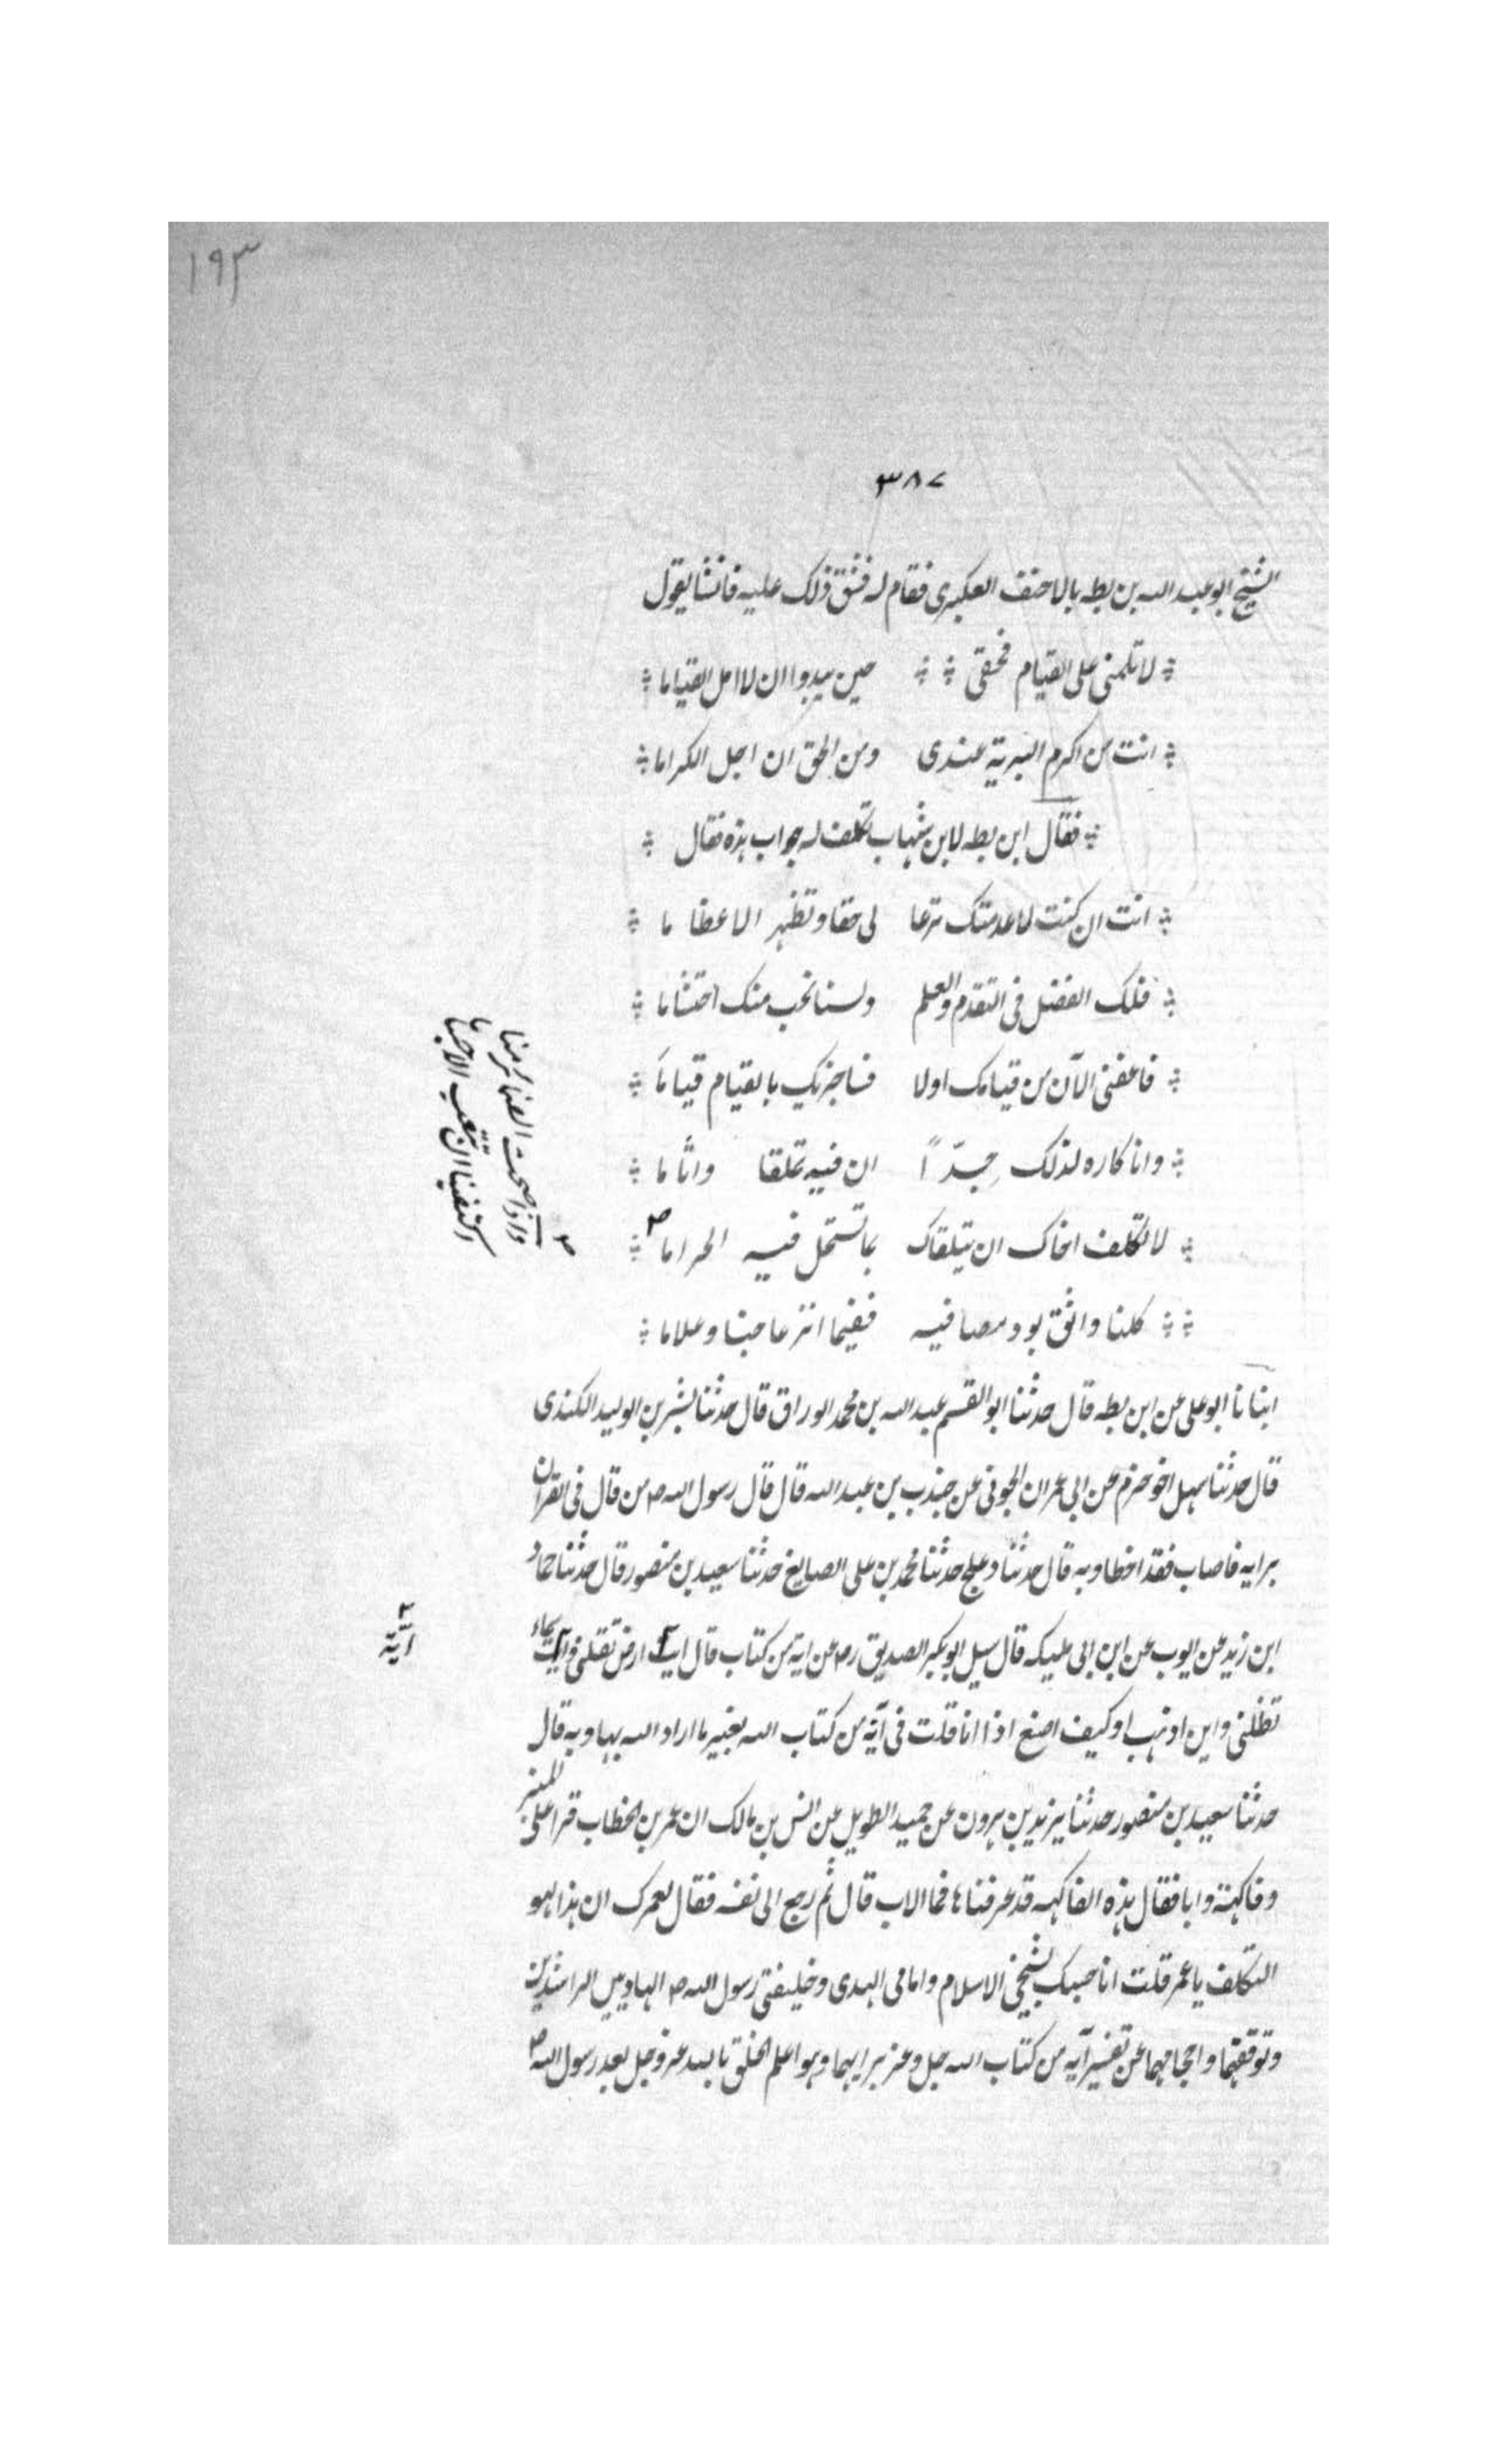 ١٩٣
٣٨٧
الشيخ ابو عبد الله بن بطه بالاحنف العكبرى فقام له فشق ذلك عليه فانشا يقول
لا تلمنى على القيام فحقى حين يبدوا ان لا امل القياما
انت من اكرم البرية عندى ومن الحق ان اجل الكراما
فقال ابن بطه لابن شهاب تكلف له جواب هذه فقال
انت ان كنت لا عدمتك ترعا لى حقا وتظهر الاعظا ما
فلك الفضل فى التقدم والعلم ولسنا نحب منك احتشاما
فاعفنى الآن من قيامك اولا فساجزيك بالقيام قياما
وانا كاره لذلك جدّاً ان فيه تملقا واثاما
لا تكلف اخاك ان يتلقاك بما تستحل فيه الحراما ص
ص واذا صحت الضمائر منا
اكتفينا ان نتعب الاجساما
كلنا واثق بود مصافيه ففيما انزعاجنا وعلاما
انبانا ابو على عن ابن بطه قال حدثنا ابو القسم عبد الله بن محمد الوراق قال حدثنا بشر بن الوليد الكندى
قال حدثنا سهل اخو حزم عن ابى عمران الجونى عن جندب بن عبد الله قال قال رسول الله ص من قال فى القران
برايه فاصاب فقد اخطا وبه قال حدثنا دعلج حدثنا محمد بن على الصايغ حدثنا سعيد بن منصور قال حدثنا حماد
ابن زيد عن ايوب عن ابن ابى مليكه قال سيل ابو بكر الصديق رض عن اية من كتاب قال اية ارض تقلنى واية سماء
اية
تظلنى واين اذهب او كيف اصنع اذا انا قلت فى آية من كتاب الله بغير ما اراد الله بها وبه قال
حدثنا سعيد بن منصور حدثنا يزيد بن هرون عن حميد الطويل عن انس بن مالك ان عمر بن الخطاب قرا على المنبر
وفاكهة وابا فقال هذه الفاكهه قد عرفناها فما الاب قال ثم رجع الى نفسه فقال لعمرك ان هذا لهو
التكلف يا عمر قلت انا حسبك بشيخى الاسلام وامامى الهدى وخليفتى رسول الله ص الهاديين الراشدين
وتوقفهما واحجامهما عن تفسير آية من كتاب الله جل وعز برايهما وهما اعلم الخلق بالله عز وجل بعد رسول الله ص